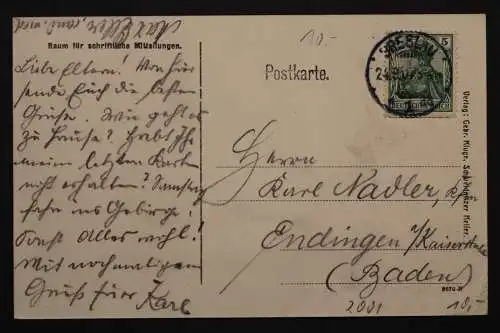 Raum für schriftliche Mitteilungen.
10.-
Liebe Eltern! Von hier
sende Euch die besten
Grüße. Wie geht es
zu Hause? Habt Ihr
meinen letzten Karte
nicht erhalten? Samstag
fahre ins Gebirge.
Sonst Alles wohl!
Mit nochmaligem
Gruß Euer Karl
Postkarte.
BRESLAU
5
DEUTSCHES REICH
Herrn
Karl Nadler,
Endingen a/Kaiserstuhl
(Baden)
Verlag: Gebr.
2001
10,-